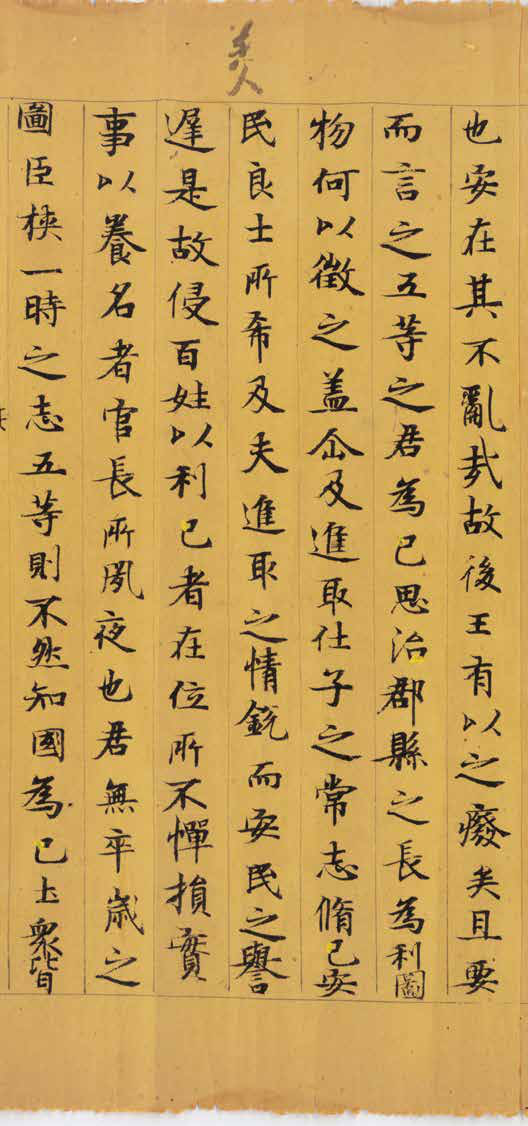 美人
也安在其不亂㢤故後王有以之癈矣且要
而言之五等之君為己思治郡縣之長為利圖
物何以徵之盖企及進取仕子之常志脩己安
民良士所希及夫進取之情銳而安民之譽
遅是故侵百姓以利己者在位所不憚損實
事以養名者官長所夙夜也君無卒歳之
圖臣挾一時之志五等則不然知國為己土衆皆